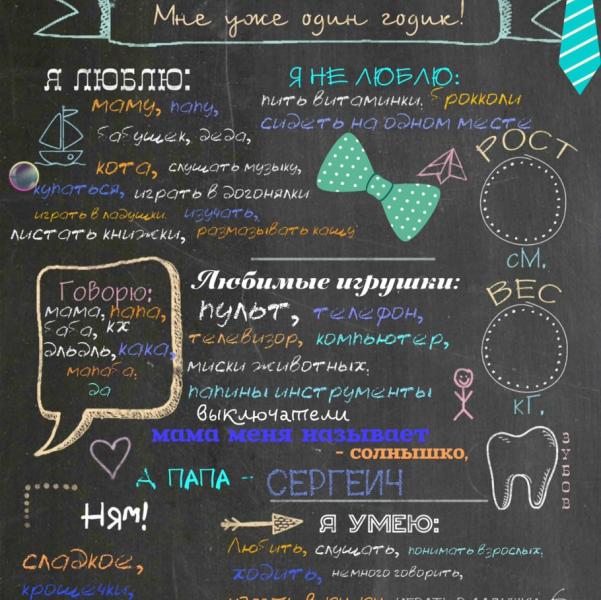 Мне уже один годик!
Я ЛЮБЛЮ:
маму, папу,
бабушек, деда,
кота, слушать музыку,
купаться, играть в догонялки
играть в ладушки. изучать,
листать книжки, размазывать кашу
Я НЕ ЛЮБЛЮ:
пить витаминки, брокколи
сидеть на одном месте
РОСТ
см.
ВЕС
кг.
Говорю:
мама, папа,
баба, кх
эльэль, кака,
мапаба,
да
Любимые игрушки:
пульт, телефон,
телевизор, компьютер,
миски животных,
папины инструменты
выключатели
мама меня называет
- солнышко,
А ПАПА -- СЕРГЕИЧ
ЗУБОВ
Ням!
сладкое,
крошечки,
Я УМЕЮ:
Любить, слушать, понимать взрослых,
ходить, немного говорить,